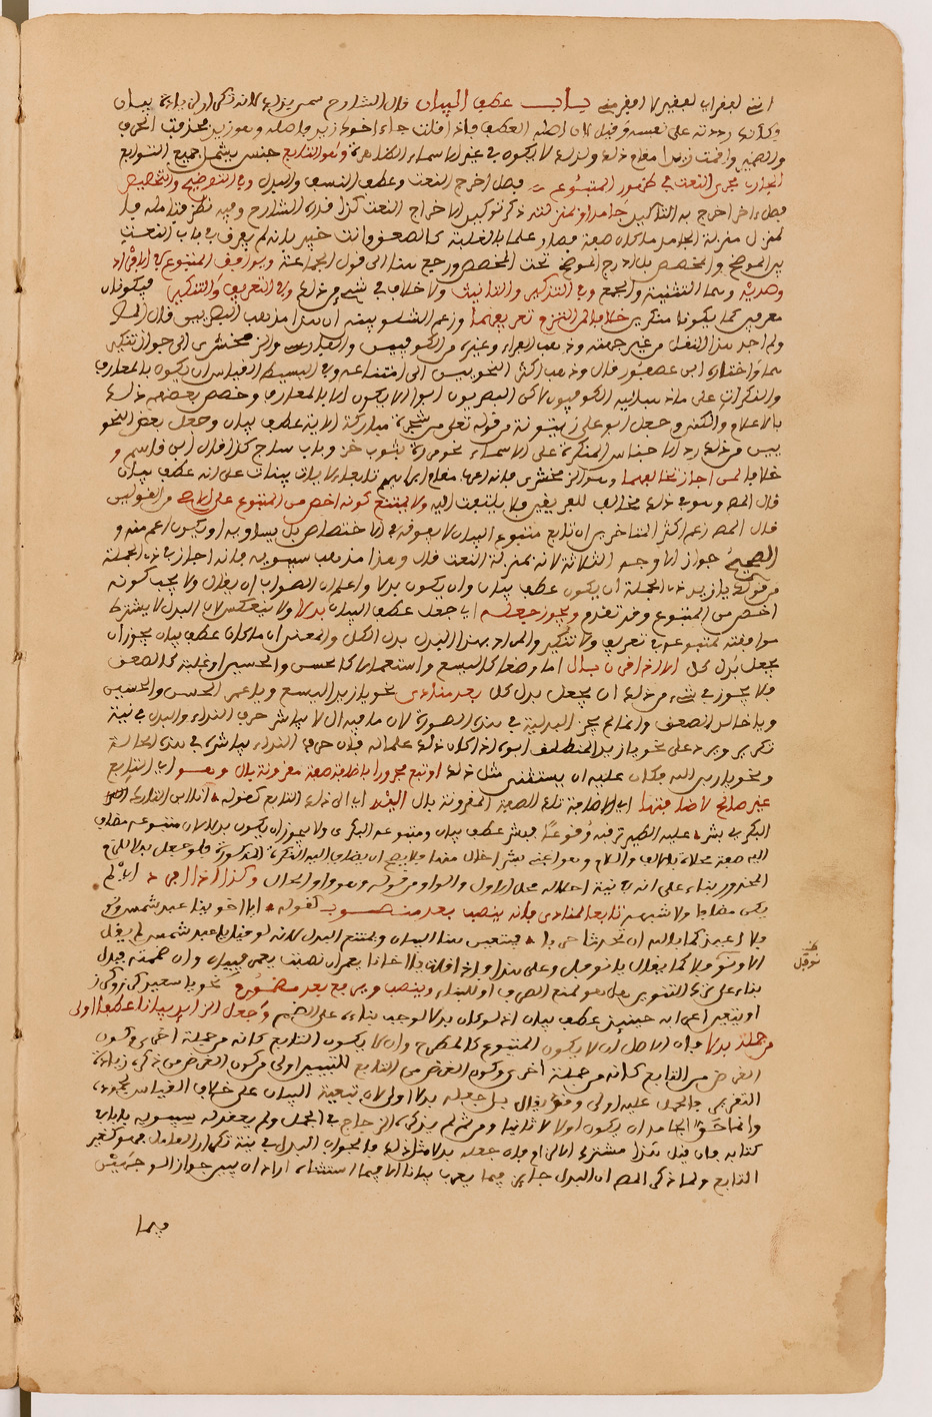 باب عطف البيان قال الشارح سمي بذلك لأنه تكرار الأول لزيادة بيان
وكأنك رددته على نفسه وقيل لأن أصله العطف فإذا قلت جاء أخوك زيد فأصله وهو زيد حذفت الحرف
والضمير وأقمت زيدا مقام ذلك ولذلك لا يكون في غير الأسماء الظاهرة وهو التابع جنس يشمل جميع التوابع
الجاري مجرى النعت في ظهور المتبوع فصل أخرج النعت وعطف النسق والبدل وفي التوضيح والتخصيص
فصل آخر أخرج به التأكيد جامدا أو بمنزلته ذكر توكيد لإخراج النعت كذا قدره الشارح وفيه نظر فتأمله
لمنزل منزلة الجامد ما كان صفة فصار علما بالغلبة كالصعق وأنت خبير بأنه لم يعرف في باب النعت
بين الموضح والمخصص بل أدرج الموضح تحت المخصص ورجع هنا إلى قول الجماعة ويوافق المتبوع في الإفراد
وضديه وهما التثنية والجمع وفي التذكير والتأنيث ولا خلاف في شيء من ذلك وفي التعريف والتنكير فيكونان
معرفين كما يكونان منكرين خلافا لمن التزم تعريفهما وزعم الشلوبين أن هذا مذهب البصريين قال المص
ولم أجد هذا النقل من غير جهته وذهب الفراء وغيره من الكوفيين والفارسي والزمخشري إلى جواز تنكير
هما واختاره ابن عصفور قال وذهب أكثر النحويين إلى امتناعه وفي البسيط القياس أن يكون بالمعارف
والنكرات على ما ذهب إليه الكوفيون لكن البصريون أبوا إلا يكون إلا بالمعارف وخصص بعضهم ذلك
بالأعلام والكنى وجعل أبو علي زيتونة من قوله تعلى من شجرة مباركة الآية عطف بيان وجعل بعض النحو
يين من ذلك رد الأجناس المنكرة على الأسماء نحو مررت بثوب خز وباب ساج كذا قال ابن قاسم و
خلافا لمن أجاز تخالفهما وهو الزمخشري فإنه أعرب مقام إبراهيم تابعا لآيات بينات على أنه عطف بيان
قال المص وهو في ذلك مخالف للفريقين فلا يلتفت إليه ولا يمتنع كونه أخص من المتبوع على الأصح من القولين
قال المص زعم أكثر المتأخرين أن تابع متبوع البيان لا يفوقه في الاختصاص بل يساويه أو يكون أعم منه و
الصحيح جواز الأوجه الثلاثة لأنه بمنزلة النعت قال وهذا مذهب سيبويه فإنه أجاز في ذا الجملة
من قولك يا زيد ذا الجملة أن يكون عطف بيان وأن يكون بدلا واعلم أن الصواب أن يقال ولا يجب كونه
أخص من المتبوع وقد تقدم ويجوز جعله أي جعل عطف البيان بدلا ولا ينعكس لأن البدل لا يشترط
موافقته لمتبوعه في تعريف ولا تنكير والمراد بهذا البدل بدل الكل والمعنى أن ما كان عطف بيان يجوز أن
يجعل بدل كل إلا إذا قرن بال إما وضعا كاليسع واستعمالا كالحسن والحسين أو غلبة كالصعق
فلا يجوز في شيء من ذلك أن يجعل بدل كل بعد منادى نحو يا زيد اليسع ويا عمر الحسن والحسين
ويا خالد الصعق وإنما لم يجز البدلية في هذه الصورة لأن ما فيه ال لا يباشر حرف النداء والبدل في نية
تكرير ويرد على نحو يا زيد المنطلق أبوه إذا كان ذلك علما له فإن حرف النداء يباشره في هذه الحالة
ونحو يا رب الله فكان عليه أن يستثني مثل ذلك أو تبع مجرورا بإضافة صفة مقرونة بال وهو أي التابع
غير صالح لإضافتها أي لإضافة تلك الصفة المقرونة بال إليه أي إلى ذلك التابع كقوله أنا ابن التارك
البكري بشر عليه الطير ترقبه وقوعا فبشر عطف بيان ومتبوعه البكري ولا يجوز أن يكون بدلا لأن متبوعه مضاف
إليه صفة محلاة بالألف واللام وهو أعني بشر
المحذور بناء على أنه في نية إحلاله محل الأول والواو من قوله وهو واو الحال وكذا إذا أفرد أي لم
يكن مضافا ولا شبيهه تابعا لمنادى فإنه ينصب بعد منصوب كقوله أيا أخوينا عبد شمس ونو
فلا أعيذكما بالله أن تحدثا حربا فيتعين هنا البيان ويمتنع البدل لأنه لو قيل يا عبد شمس لم يقل
إلا ونوفلا كما يقال يا نوفل وعلى هذا فإذا قلت يا أخانا بعمر إن نصبت يعني فبيان وإن ضممته فبدل
بناء على ترك التنوين هل هو لمنع الصرف أو للبناء وينصب ويرفع بعد مضموم نحو يا سعيد كرز وكرز
أو يتعين أعرابه حينئذ عطف بيان إذ لو كان بدلا لوجب بناؤه على الضم وجعل الزائد بيانا عطفا أولى
من جعله بدلا فإن الأصل أن لا يكون المتبوع كالمطرح وأن لا يكون التابع كأنه من جملة أخرى وكون
الغرض من التابع كأنه من جملة أخرى وكون الغرض من التابع للتبيين أولى من كون الغرض من ذكره زيادة
التقرير والحمل عليه أولى وقد يقال بل جعله بدلا أولى لأن تبعية البيان على خلاف القياس لجموده
وإنما حق الجامد أن يكون أولا لا ثانيا ومن ثم لم يذكره الزجاج في الجمل ولم يعقد له سيبويه بابا في
كتابه فإن قيل هذا مشترك الإلزام فإن جعله بدلا مثل ذلك فالجواب البدل في نية تكرار العامل فهو كغير
التابع ولما ذكر المص أن البدل جائز فيما يعرب بيانا إلا فيما استثناه أراد أن يبين جواز الوجهين
فيما
نوفل